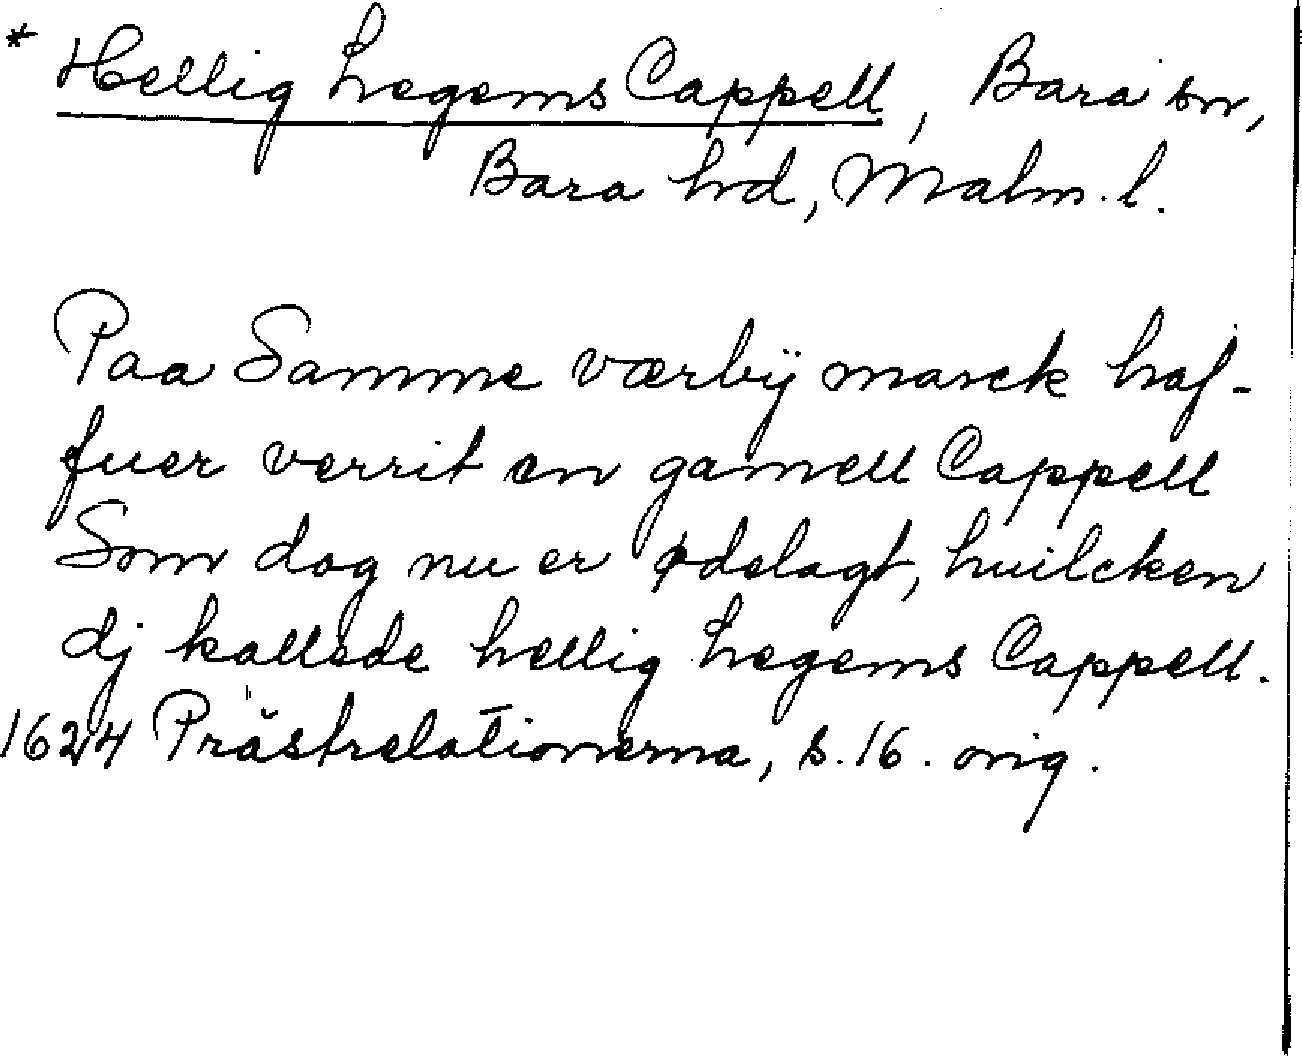 * Hellig Legems Cappell, Bara sn,
Bara hd, Malm. l.
Paa Samme værbÿ marck haf-
fuer verrit en gamell Cappell
Som dog nu er ødelagt, huilcken
dj kallede hellig Legems Cappell.
1624 Prästrelationerna, s. 16. orig.